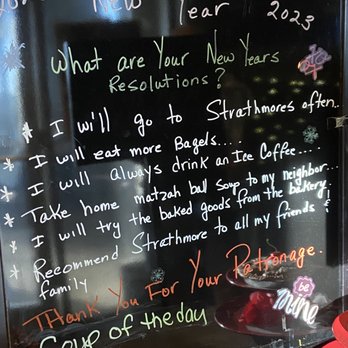 New Year 2023
What are Your New Years
Resolutions?
* I will go to Strathmores often..
* I will eat more Bagels....
* I will always drink an Ice Coffee....
* Take home matzah ball soup to my neighbor...
* I will try the baked goods from the bakery!
* Recommend Strathmore to all my friends &
family
Thank You For Your Patronage.
Soup of the day
be
mine